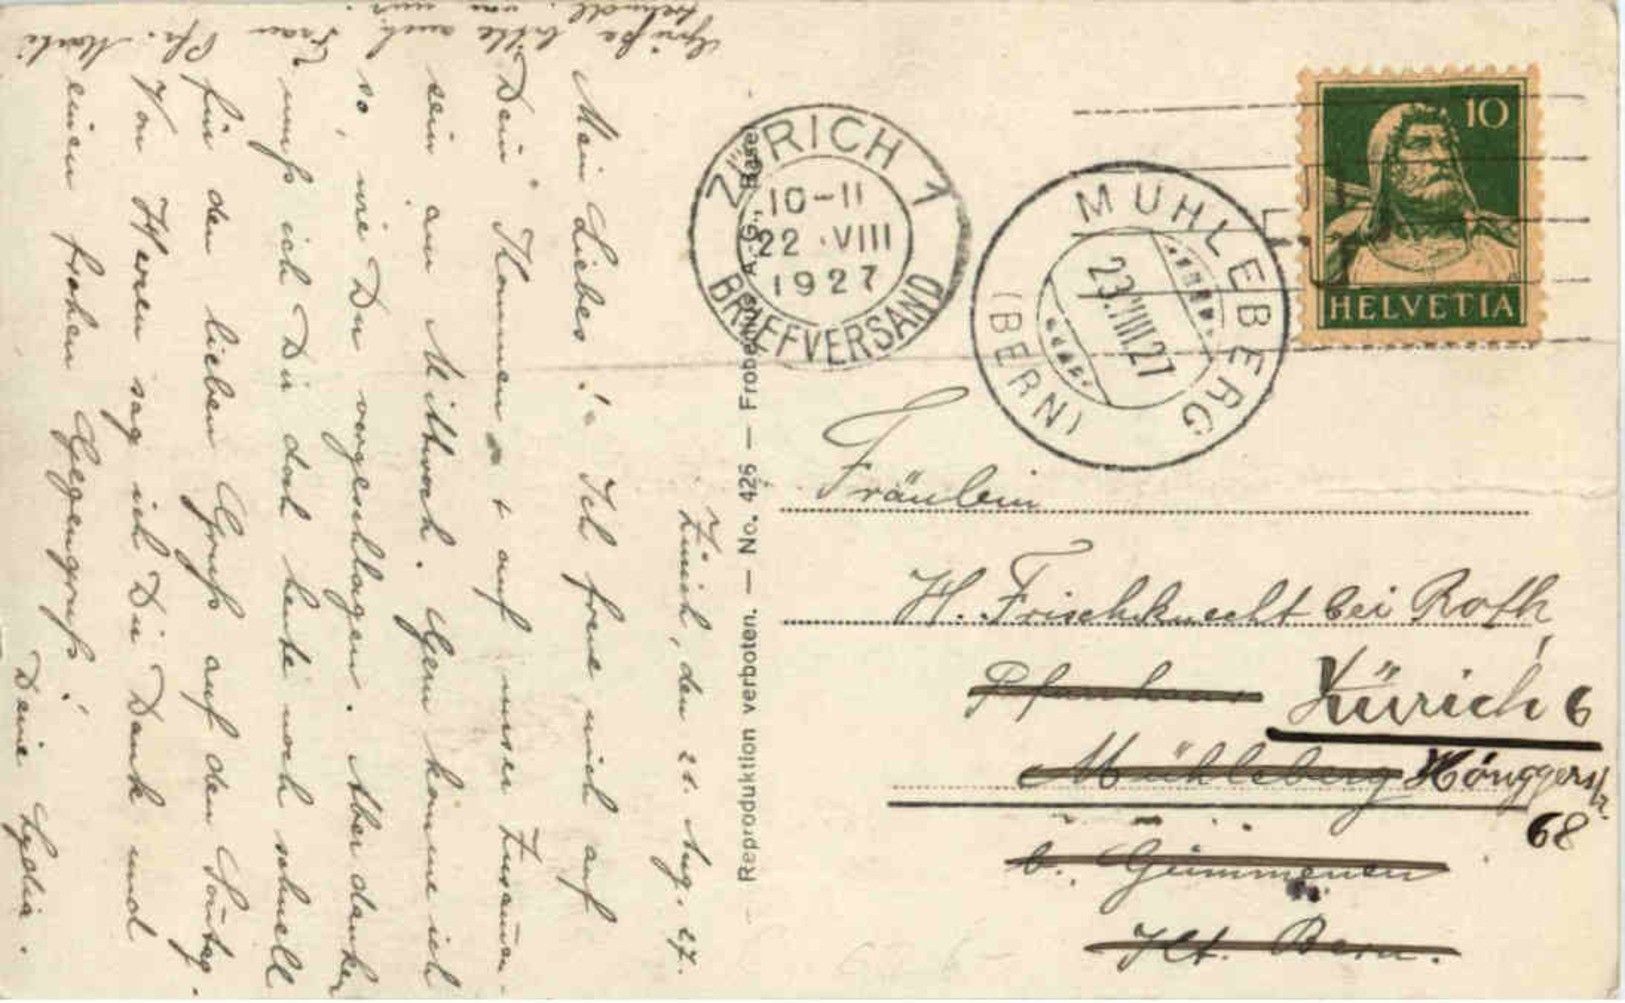 Zürich, den 21. Aug. 27.
Mein Liebes! Ich freue mich auf
Dein Kommen + auf unser Zusammen-
sein am Mittwoch. Gern komme ich
so, wie Du vorgeschlagen. Aber danken
muß ich Dir doch heute noch schnell
für den lieben Gruß auf den Sonntag.
Von Herzen sag ich Dir Dank und
einen frohen Gegengruß!
Deine Lydia.
Grüße bitte auch Frau Pfr. Marti
von uns.
Reproduktion verboten. — No. 426 — Frobenius A. G., Basel
ZÜRICH 1
10-11
22.VIII
1927
BRIEFVERSAND
MÜHLEBERG
23.VIII.27
(BERN)
10
HELVETIA
Fräulein
H. Frischknecht bei Roth,
Pfarrhaus Zürich 6
Mühleberg Hönggerstr.
68
b. Gümmenen
Kt. Bern.